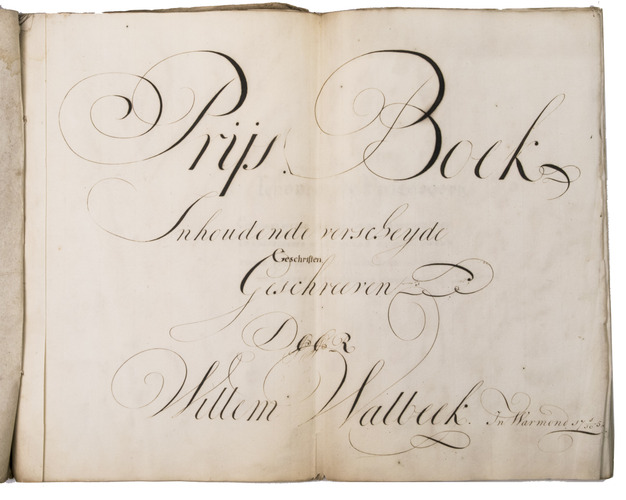 Prijs Boek
Inhoudende verscheyde
Geschriften
Geschreeven
Door
Willem Walbeek. In Warmond